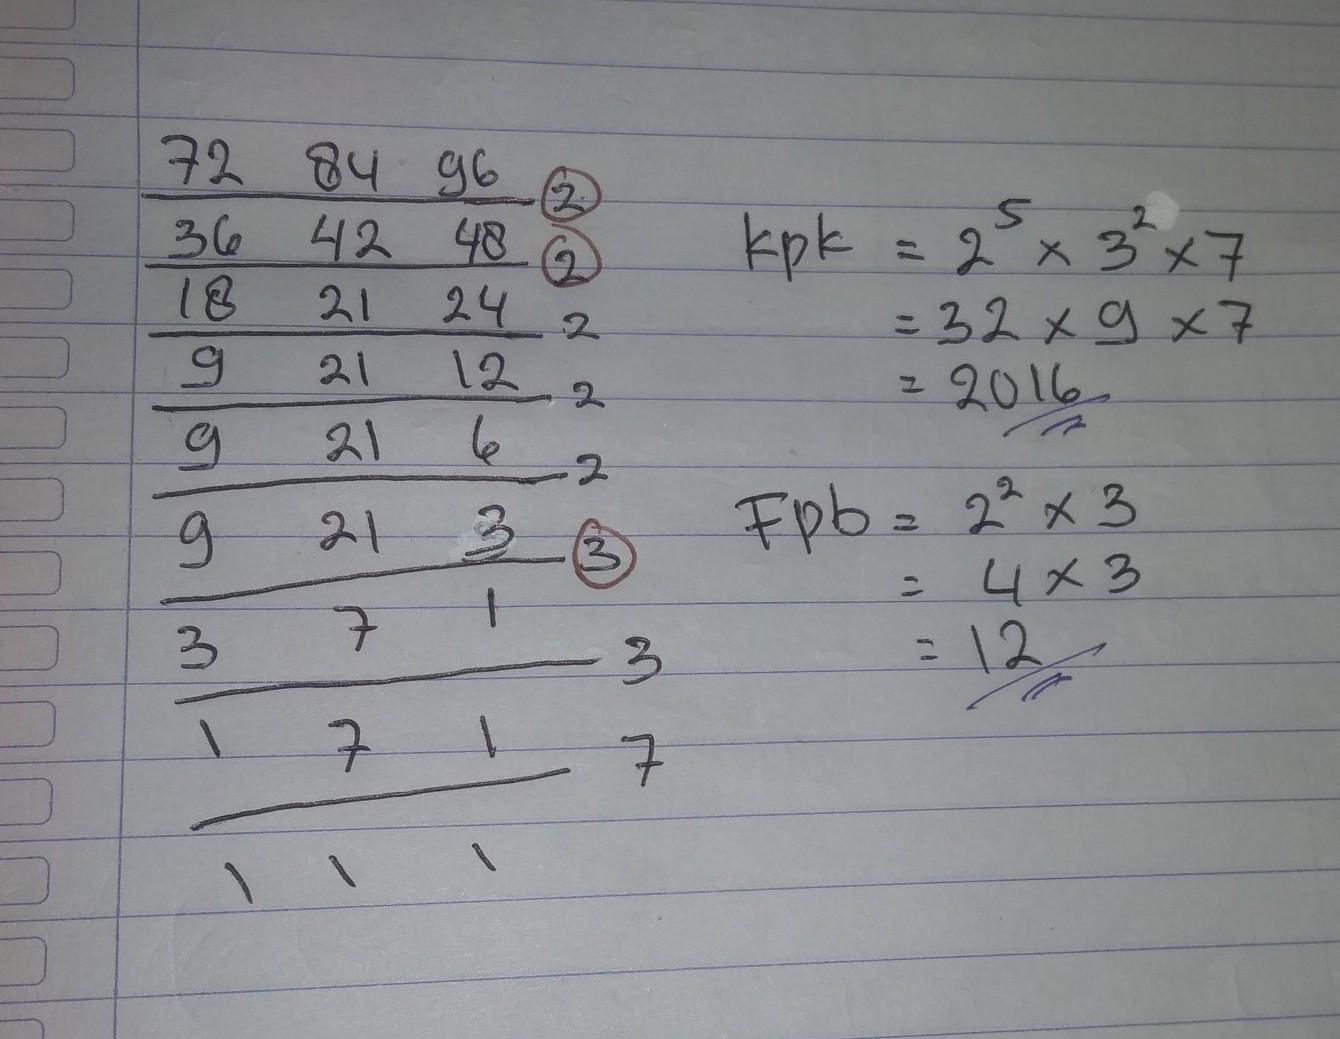 72 84 96 2
36 42 48 2
18 21 24 2
9 21 12 2
9 21 6 2
9 21 3 3
3 7 1 3
1 7 1 7
1 1 1
kpk = 2⁵ × 3² × 7
= 32 × 9 × 7
= 2016
Fpb = 2² × 3
= 4 × 3
= 12